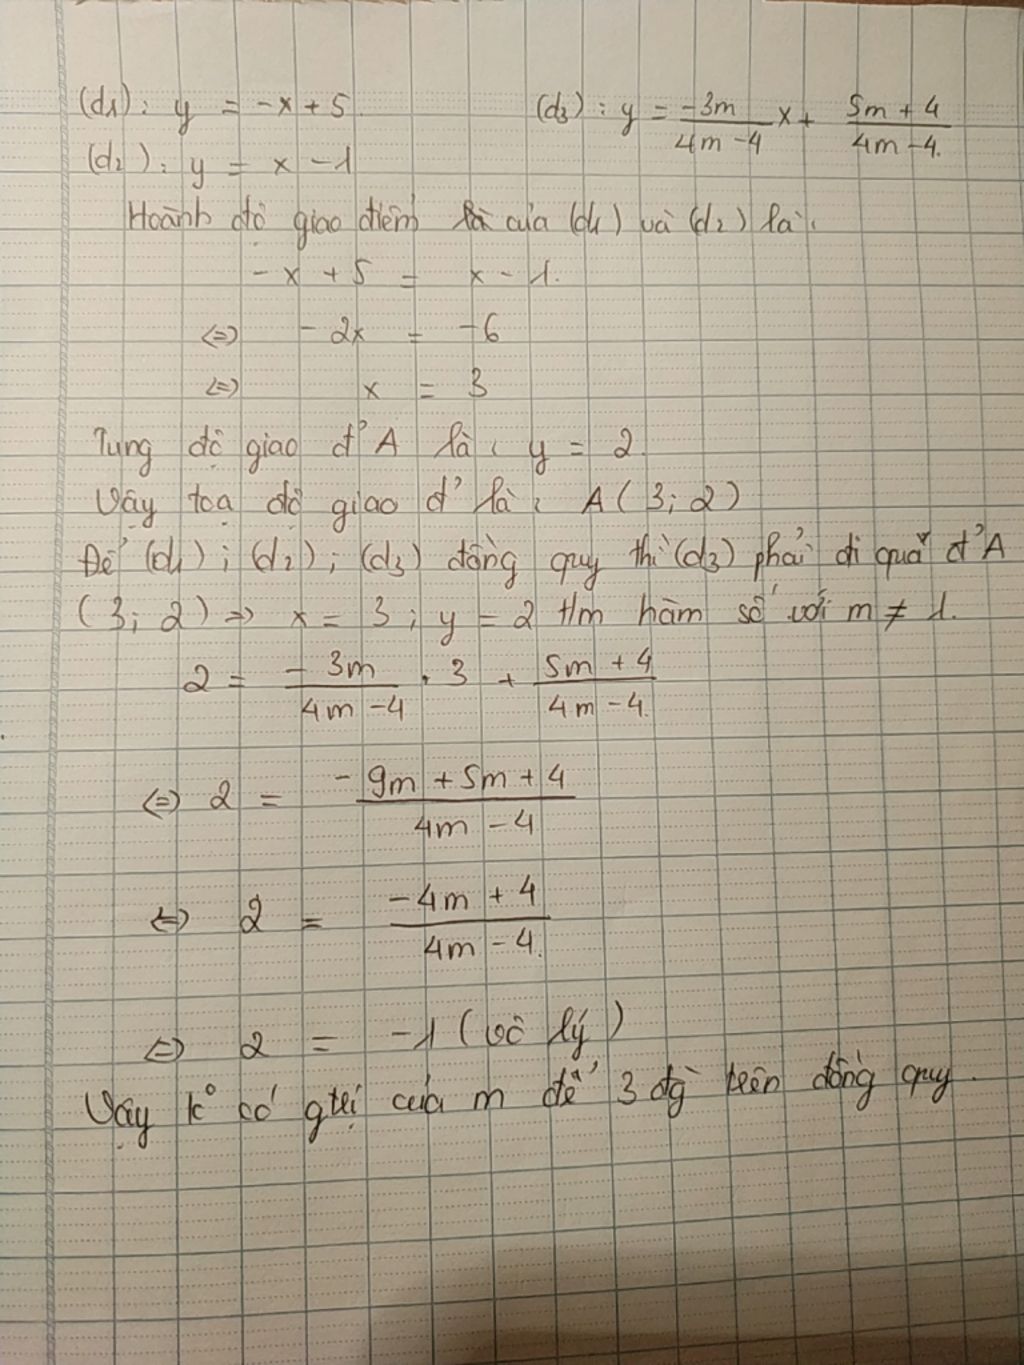 (d1): y = -x + 5 (d3): y = -3m/4m-4 x + 5m+4/4m-4.
(d2): y = x - 1
Hoành độ giao điểm là của (d1) và (d2) là:
-x + 5 = x - 1.
<=> -2x = -6
<=> x = 3
Tung độ giao đ' A là: y = 2.
Vậy toạ độ giao đ' là: A(3;2)
Để (d1); (d2); (d3) đồng quy thì (d3) phải đi qua đ' A
(3;2) => x = 3; y = 2 t/m hàm số với m ≠ 1.
2 = -3m/4m-4 . 3 + 5m+4/4m-4.
<=> 2 = -9m+5m+4/4m-4
<=> 2 = -4m+4/4m-4.
<=> 2 = -1 (vô lý)
Vậy k° có gtrị của m để 3 đg trên đồng quy.